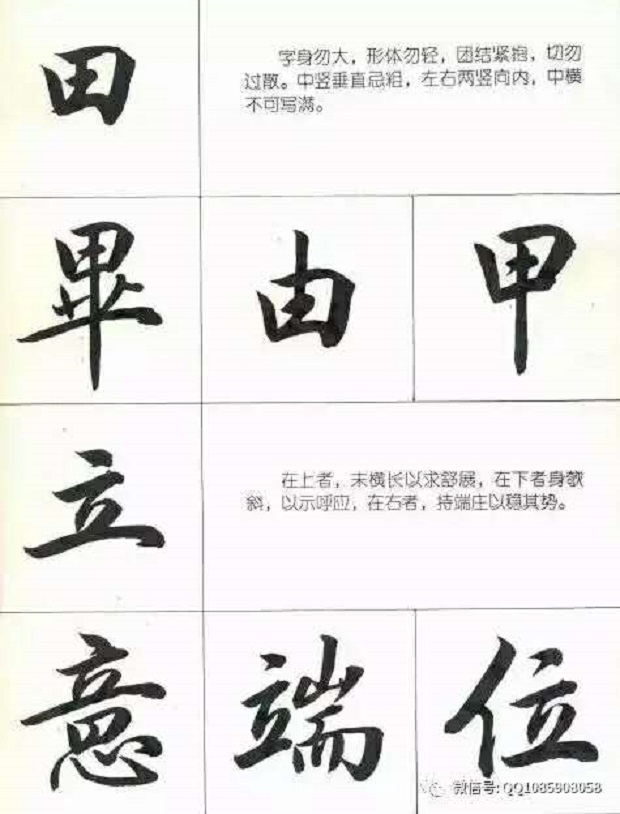 田
字身勿大，形体勿轻，团结紧抱，切勿
过散。中竖垂直忌粗，左右两竖向内，中横
不可写满。
畢 由 甲
立
在上者，末横长以求舒展，在下者身欹
斜，以示呼应，在右者，持端庄以稳其势。
意 端 位
微信号: QQ1085908058